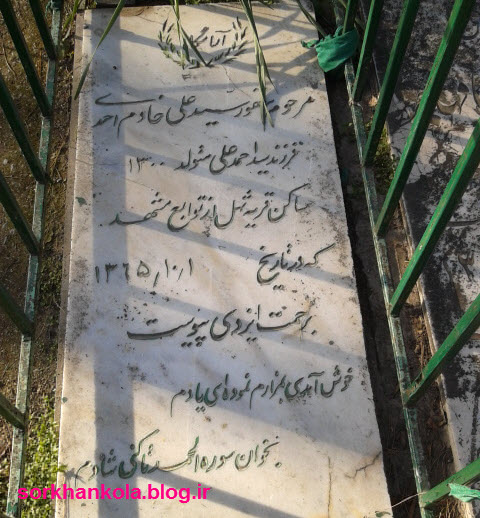 آرامگاه
مرحوم مغفور سید علی خادم احمدی
فرزند سید احمد علی متولد ۱۳۰۰
ساکن قریه شهل از توابع مشهد
که در تاریخ ۱۳۶۵/۱۰/۱
برحمت ایزدی پیوست
خوش آمدی بمزارم نموده‌ای یادم
بخوان سوره الحمد تا کنی شادم
sorkhankola.blog.ir